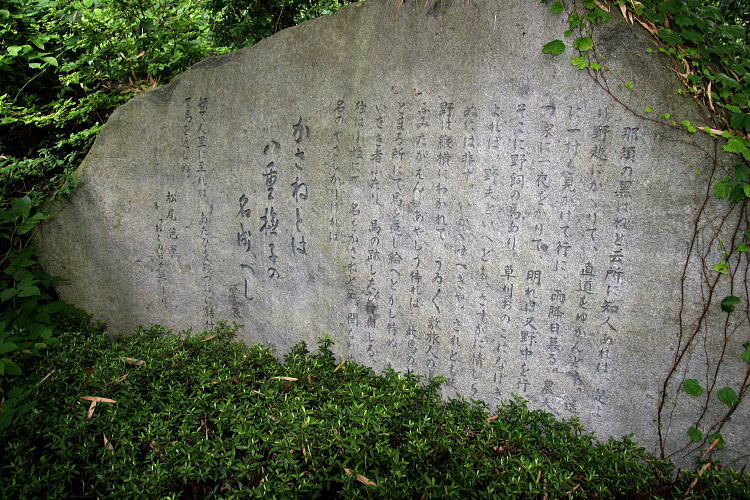 那須の黒ばねと云所に知人あれば 是よ
り野越にかゝりて、直道をゆかんとす。遥
に一村を見かけて行に 雨降日暮る。農
夫の家に一夜をかりて、明れば又野中を行。
そこに野飼の馬あり。草刈おのこになげ
よれば、野夫といへどもさすがに情しら
ぬには非ず。いかゞすべきや、されども此
野は縦横にわかれて うゐ〱敷旅人の
ふみたがえん、あやしう侍れば 此馬の
とまる所にて馬を返し給へとかし侍ぬ。
いさき者ふたり 馬の跡したひてはしる。
独は小姫にて 名をかさねと云。聞な
名のやさしかりければ
かさねとは
八重撫子の
名成べし
曽良
頓て人里に至れば、あたひを鞍つぼに結付
て馬を返しぬ。
松尾芭蕉